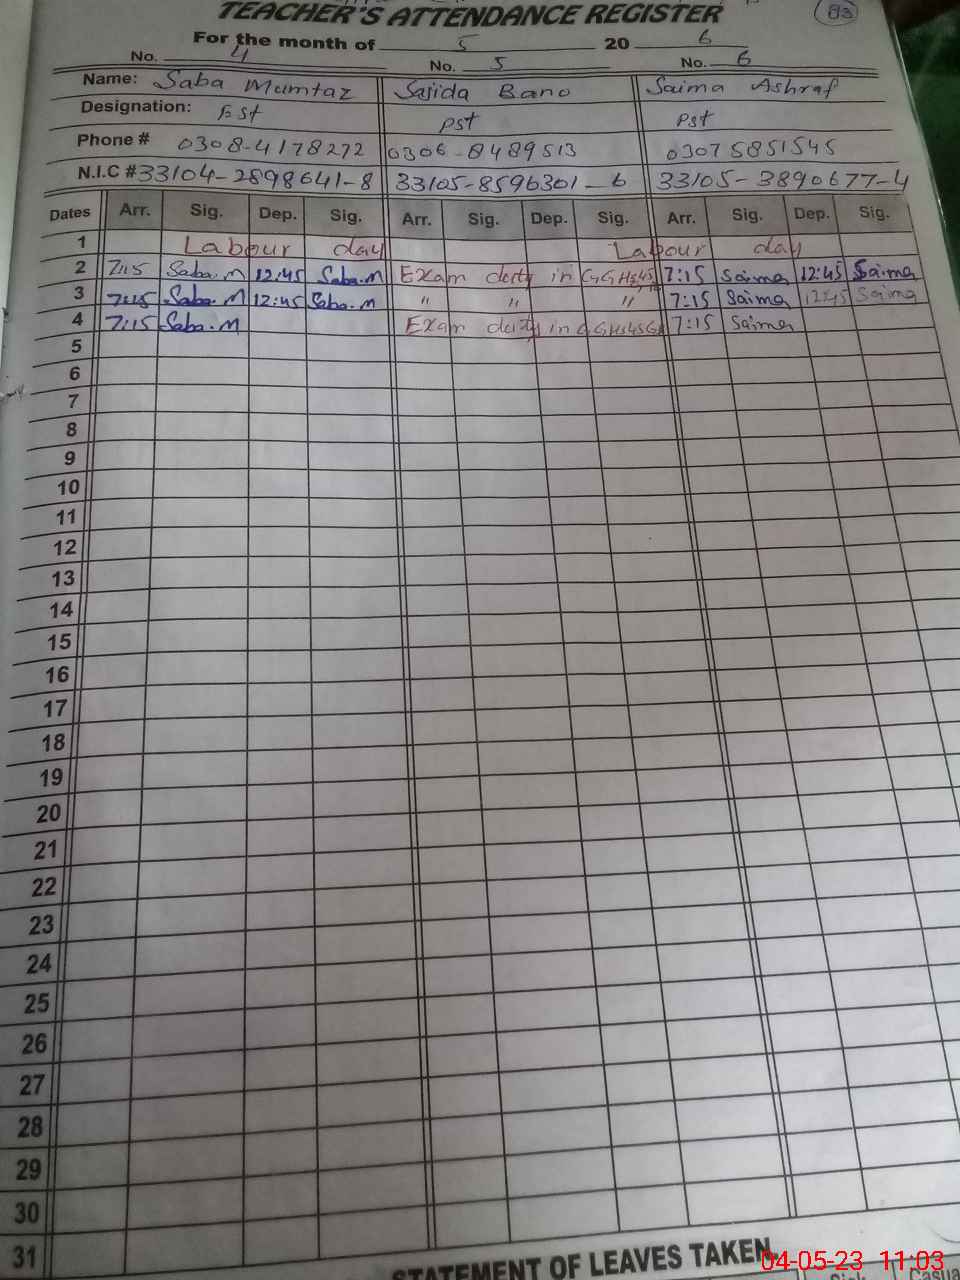 TEACHER'S ATTENDANCE REGISTER 83
For the month of 5 20 6
No. 4 No. 5 No. 6
Name: Saba Mumtaz Sajida Bano Saima Ashraf
Designation: Est Pst Pst
Phone # 0308-4178272 0306-8489513 03075851545
N.I.C # 33104-2898641-8 33105-8596301-6 33105-3890677-4
Dates Arr. Sig. Dep. Sig. Arr. Sig. Dep. Sig. Arr. Sig. Dep. Sig.
1 Labour day Labour day
2 7:15 Saba.M 12:45 Saba.M Exam duty in 7:15 Saima 12:45 Saima
3 7:15 Saba.M 12:45 Saba.M " " " 7:15 Saima 12:45 Saima
4 7:15 Saba.M Exam duty in 7:15 Saima
5
6
7
8
9
10
11
12
13
14
15
16
17
18
19
20
21
22
23
24
25
26
27
28
29
30
31
STATEMENT OF LEAVES TAKEN.
04-05-23 11:03